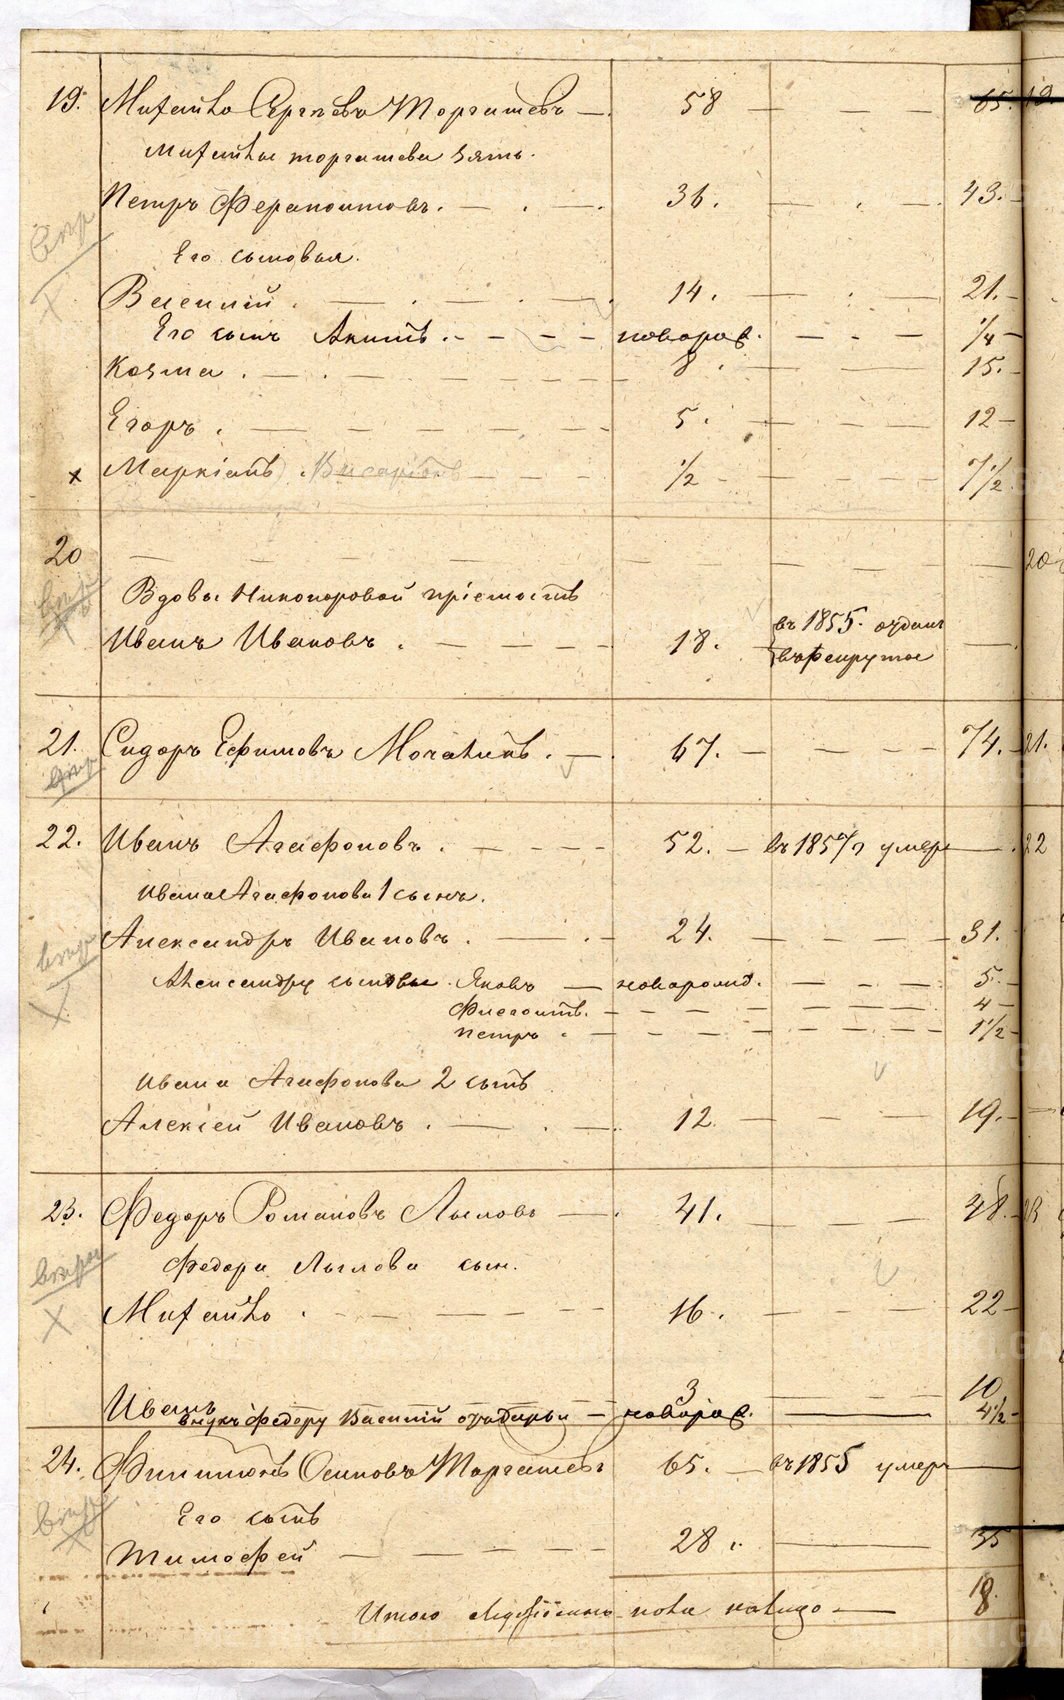 19. Михайло Сергѣевъ Торгашевъ — 58 — — — 65.
Михайлы Торгашева зять.
Петръ Ферапонтовъ. — . — . 36. — . — 43.
Его сыновья.
Василій . — . — . — 14. — . — 21.
Его сынъ Акимъ. — — — новорож. — — — 1/4
Козма . — . — — — 8. — — 15.
Егоръ . — — — — — 5. — — — 12
х Маркіанъ — — — 1/2 — — — 7 1/2
20 — — — — — — —
Вдовы Никоноровой пріемышъ
Иванъ Ивановъ . — — — 18. въ 1855. отданъ —
въ рекруты
21. Сидоръ Ефимовъ . — 67. — — — 74. 21.
22. Иванъ Агафоновъ . — — — 52. — въ 1857 г умеръ — 22
Ивана Агафонова 1 сынъ.
Александръ Ивановъ . — . — 24. — — — 31.
Александра сыновья Яковъ — новорожд. — — — 5.
— — — — — — — 4
Петръ . — — — — — — 1 1/2
Ивана Агафонова 2 сынъ
Алексѣй Ивановъ . — . — 12 — — — 19.
23. Федоръ Романовъ Лысловъ — . 41. — — — 48. 23
Федора Лыслова сын.
Михайло . — — — — — 16. — — — 22
Иванъ 3 — — — 10
внукъ Федору Василій — новорож. — 4 1/2
24. Филимонъ Осиповъ Торгашевъ 65. — въ 1855 умеръ —
Его сынъ
Тимофей — — — — 28. — 35
Итого мужескаго пола налицо — 18.